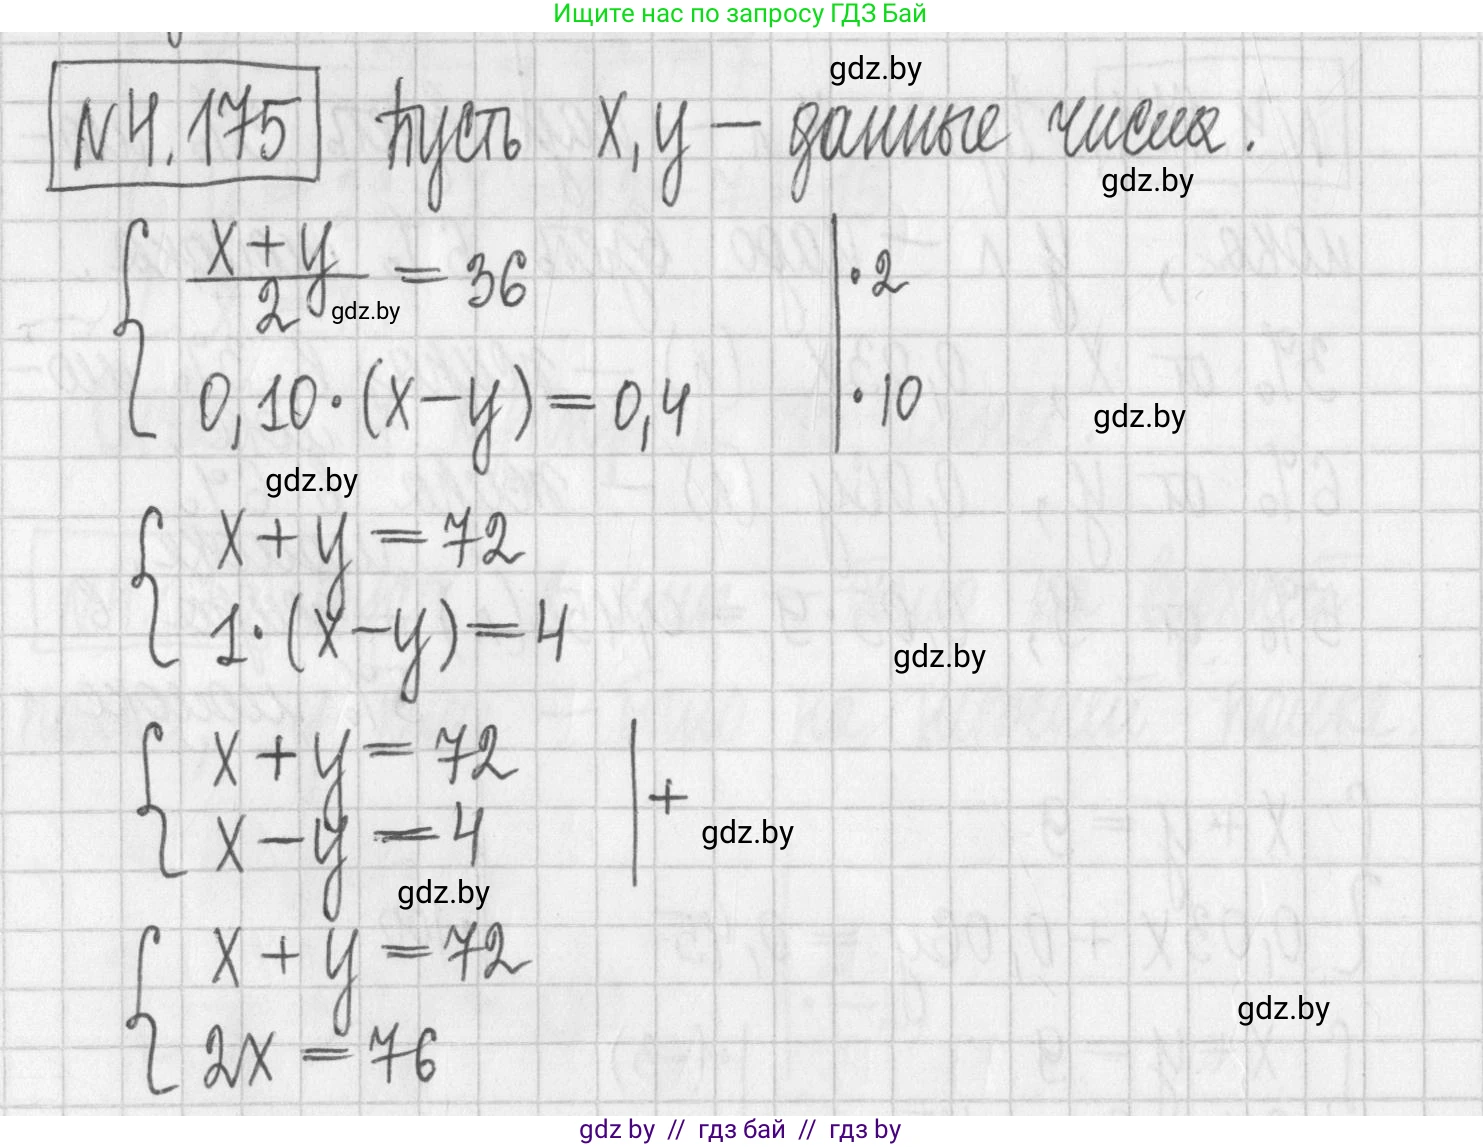 Ищите нас по запросу ГДЗ Бай
gdz.by
№4.175 Пусть x, y – данные числа.
gdz.by
{ (x+y)/2 = 36 | ·2
gdz.by
0,10·(x–y) = 0,4 | ·10
gdz.by
gdz.by
{ x+y = 72
1·(x–y) = 4
gdz.by
{ x+y = 72
x–y = 4 | +
gdz.by
gdz.by
{ x+y = 72
gdz.by
2x = 76
gdz by // гдз бай // гдз by